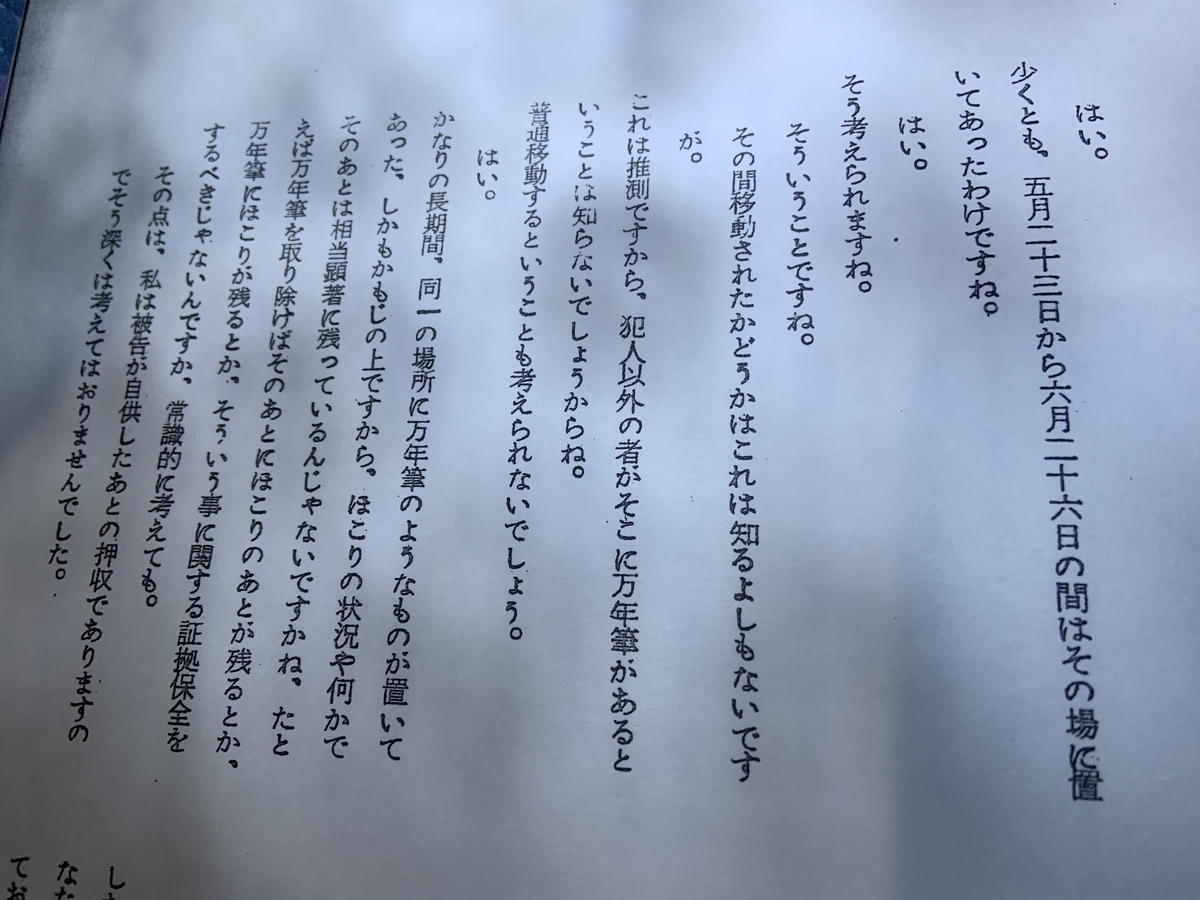 はい。
少くとも、五月二十三日から六月二十六日の間はその場に置
いてあったわけですね。
はい。
そう考えられますね。
そういうことですね。
その間移動されたかどうかはこれは知るよしもないです
が。
これは推測ですから、犯人以外の者がそこに万年筆があると
いうことは知らないでしょうからね。
普通移動するということも考えられないでしょう。
はい。
かなりの長期間、同一の場所に万年筆のようなものが置いて
あった、しかもかもじの上ですから、ほこりの状況や何かで
そのあとは相当顕著に残っているんじゃないですかね。たと
えば万年筆を取り除けばそのあとにほこりのあとが残るとか、
万年筆にほこりが残るとか、そういう事に関する証拠保全を
するべきじゃないんですか、常識的に考えても。
その点は、私は被告が自供したあとの押収でありますの
でそう深くは考えてはおりませんでした。
し
なた
てお